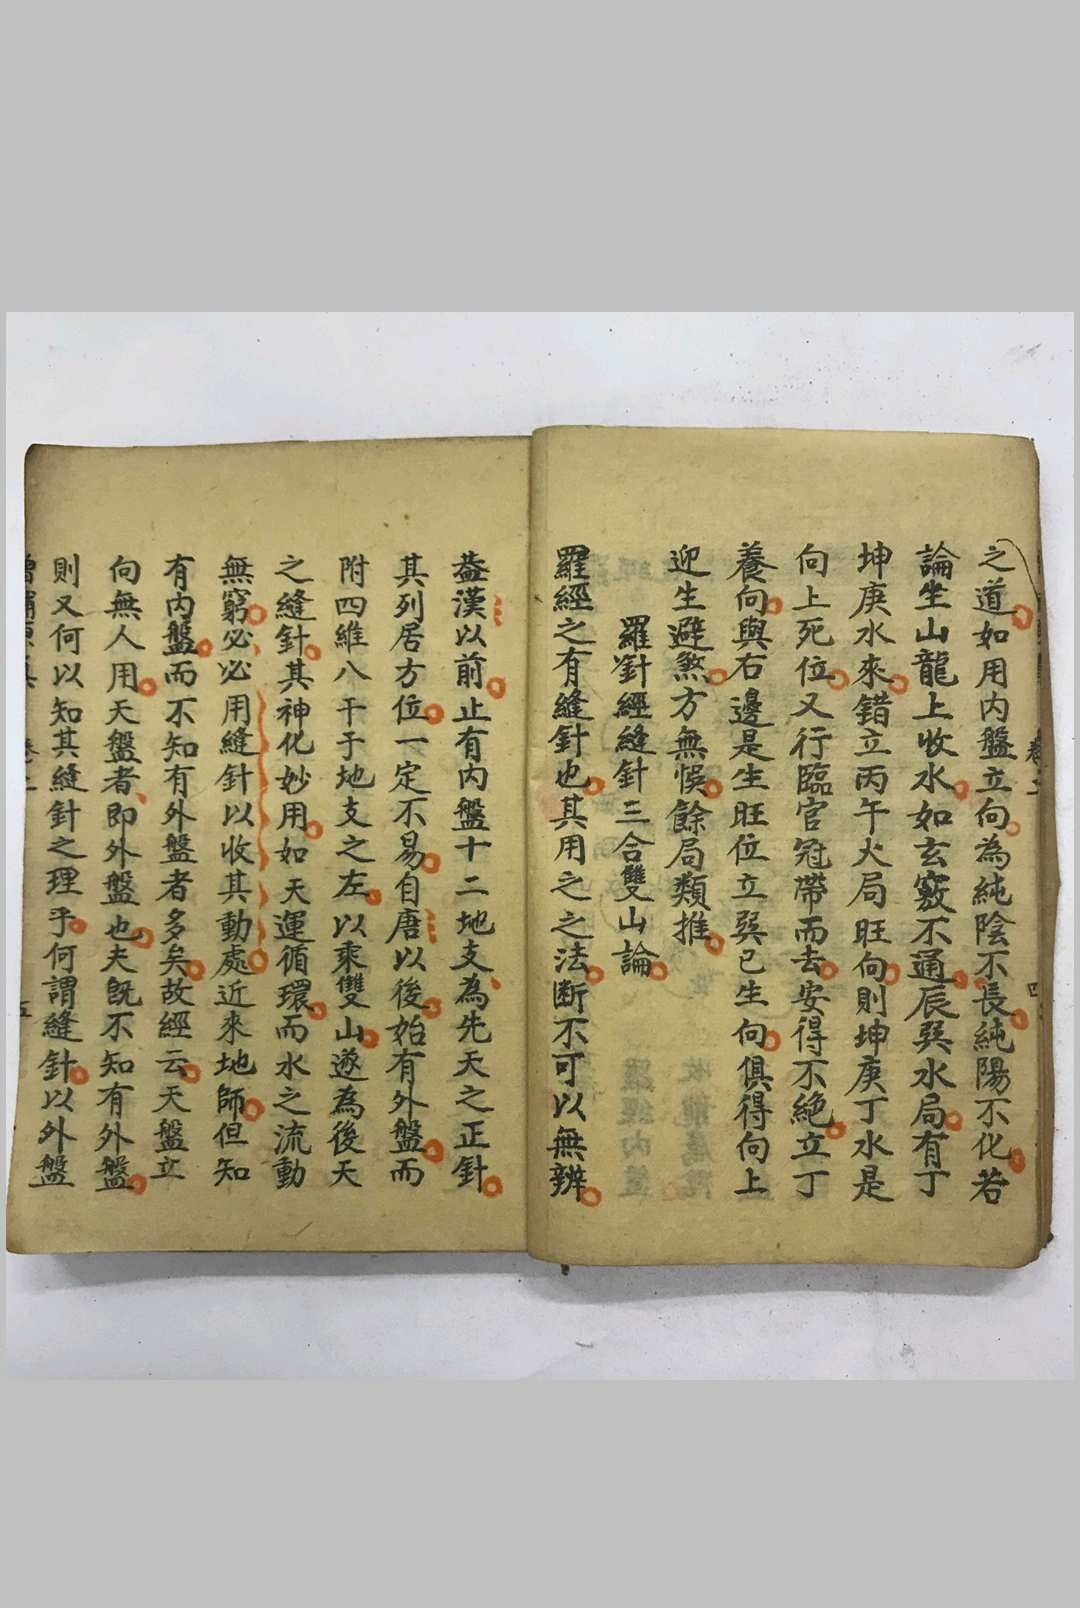 之道如用内盤立向為純陰不長純陽不化若
論坐山龍上收水如玄竅不通辰巽水局有丁
坤庚水來錯立丙午火局旺向則坤庚丁水是
向上死位又行臨官冠帶而去安得不絕立丁
養向與右邊是生旺位立巽巳生向俱得向上
迎生避煞方無悞餘局類推
羅針經縫針三合雙山論
羅經之有縫針也其用之之法断不可以無辨
葢漢以前止有内盤十二地支為先天之正針
其列居方位一定不易自唐以後始有外盤而
附四維八干于地支之左以乘雙山遂為後天
之縫針其神化妙用如天運循環而水之流動
無窮必必用縫針以收其動處近來地師但知
有内盤而不知有外盤者多矣故經云天盤立
向無人用天盤者即外盤也夫既不知有外盤
則又何以知其縫針之理乎何謂縫針以外盤